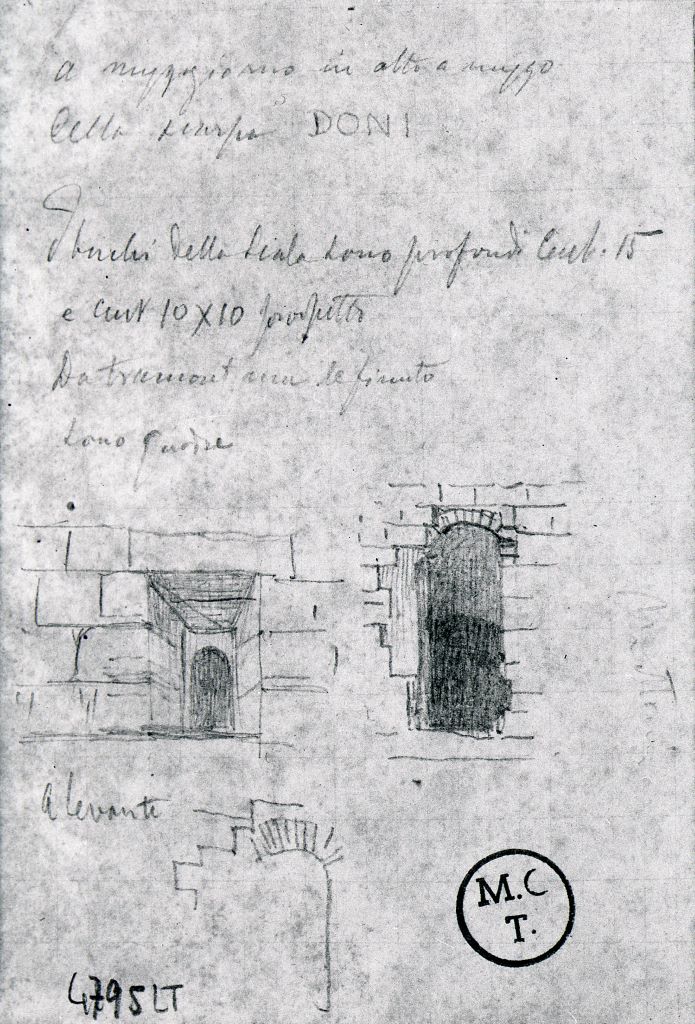 a mezzogiorno in alto a mezzo
della scarpa DONI
I buchi della scala sono profondi Cent. 15
e Cent 10 X 10 prospetto
Da tramont le finest
sono quadre
a levante
M.C
T.
4795 LT